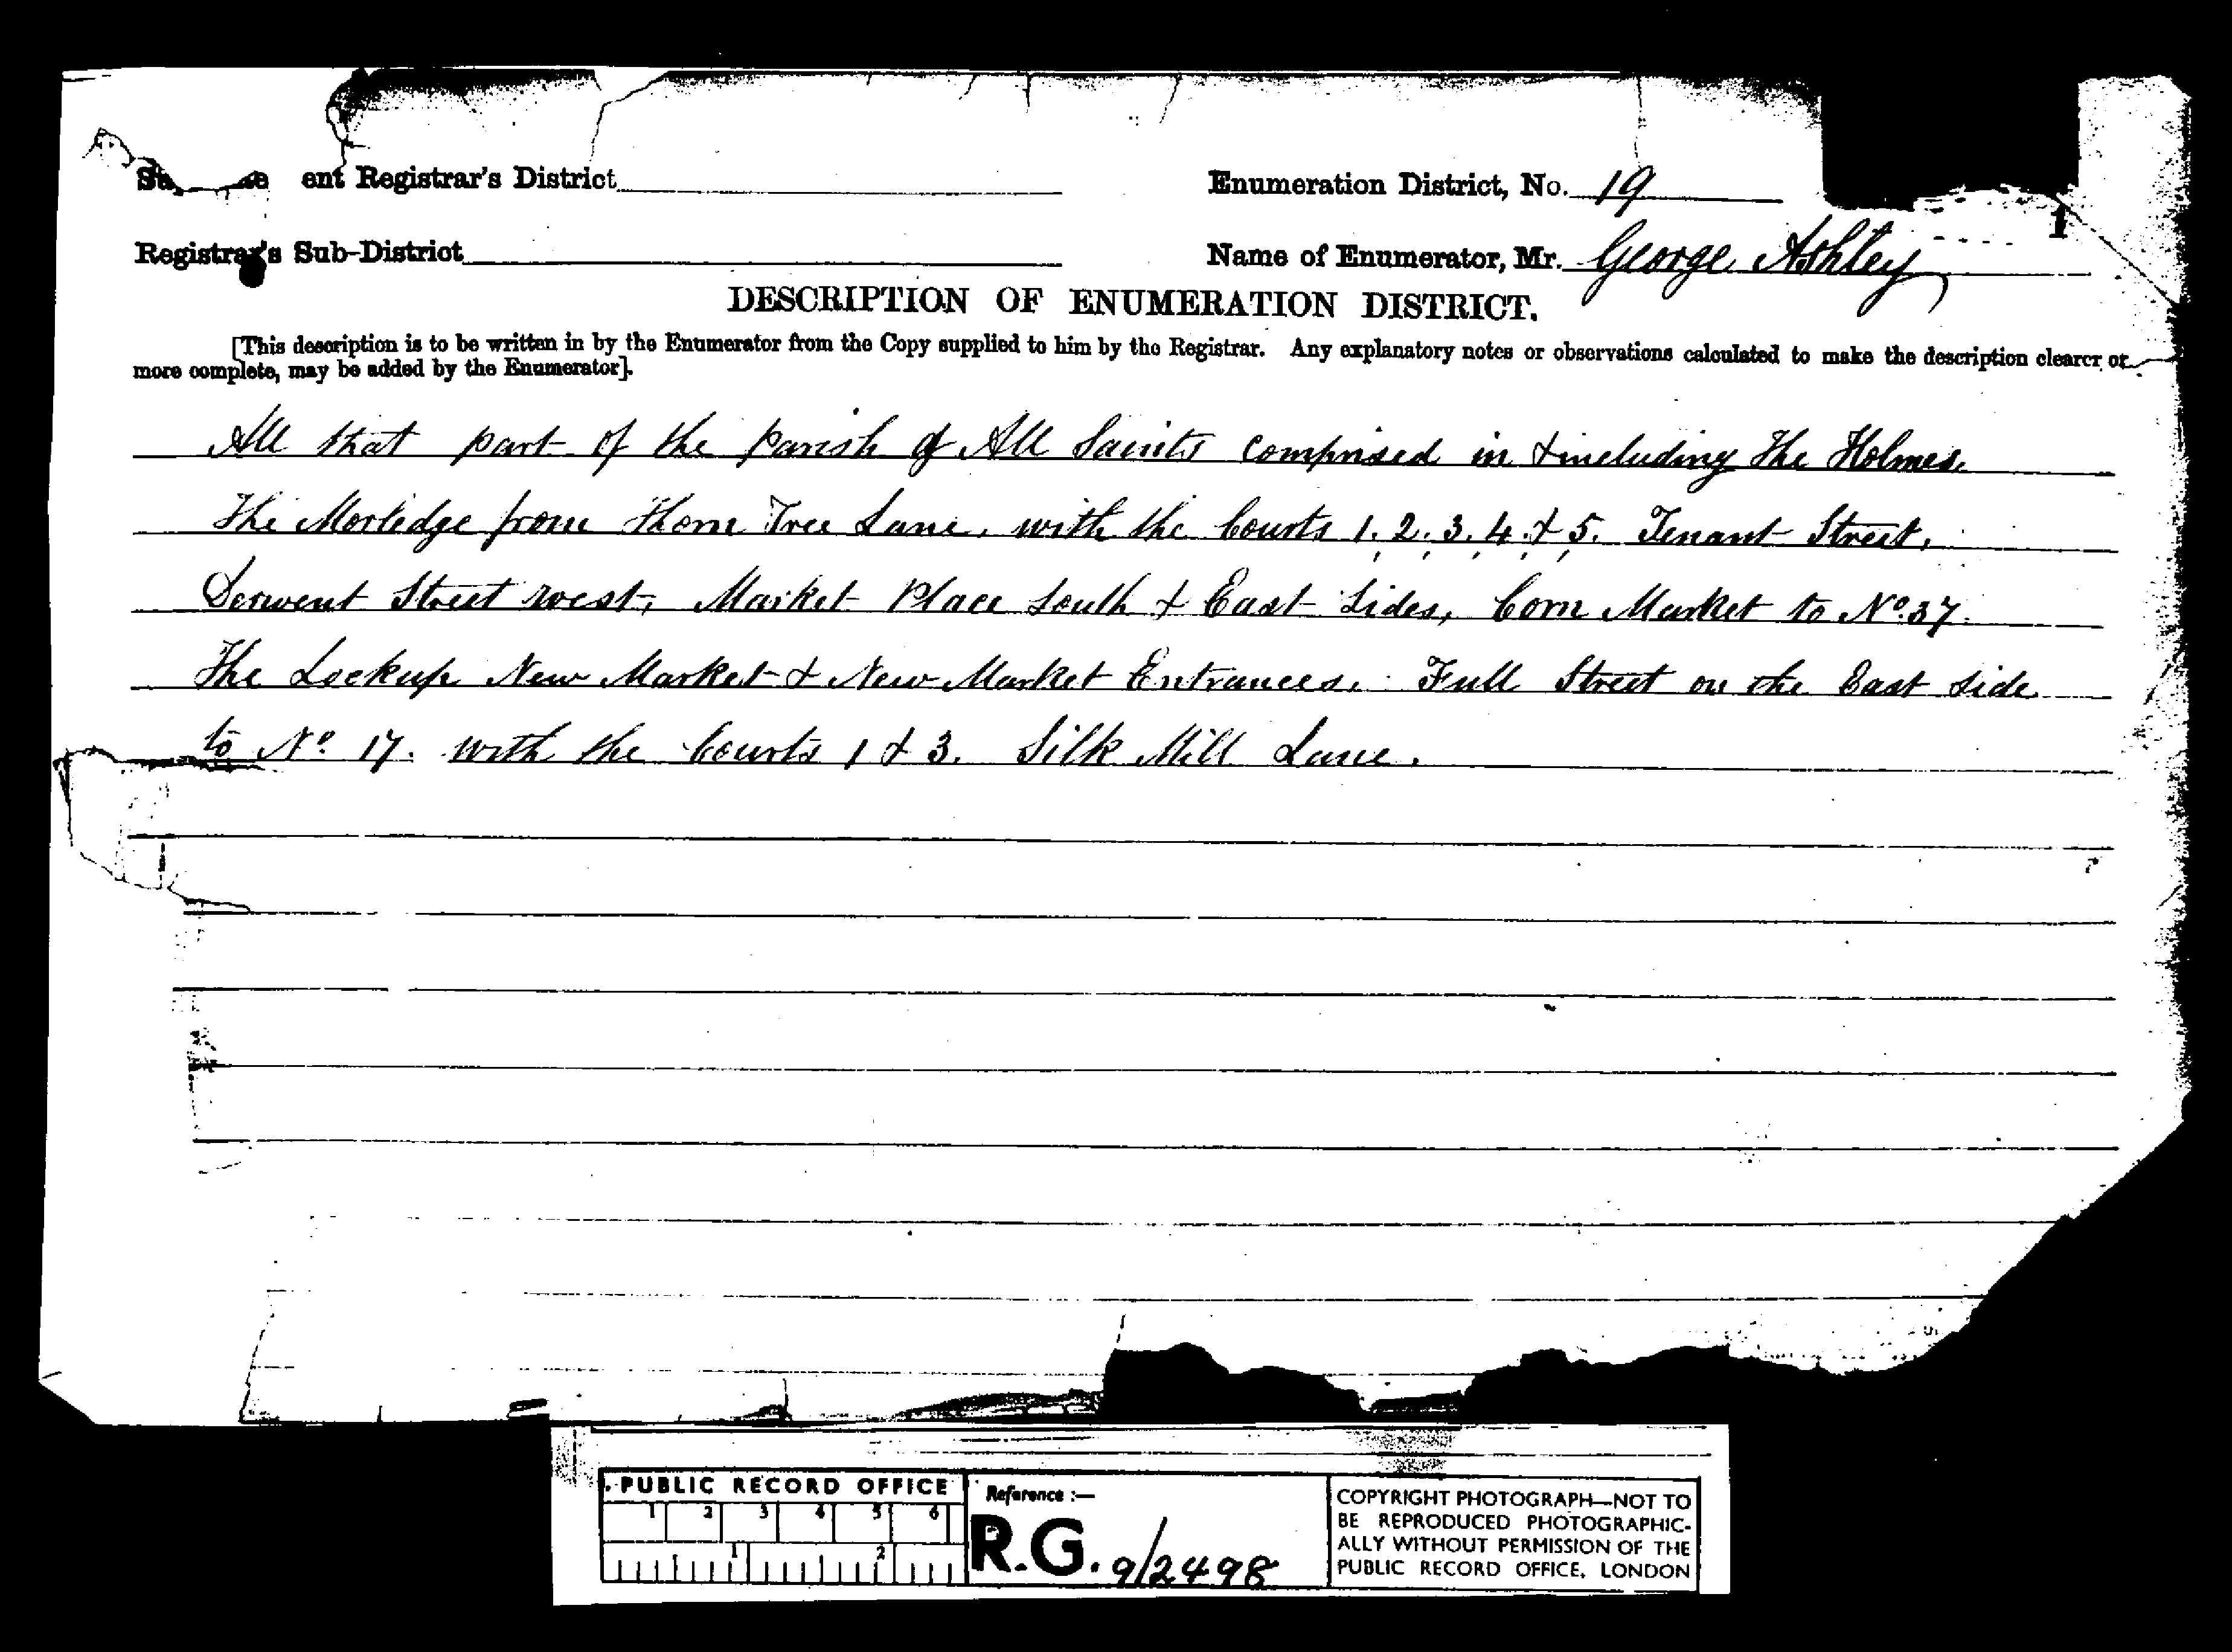 ent Registrar's District
Enumeration District, No. 19
1
Registrar's Sub-District
Name of Enumerator, Mr. George Ashley
DESCRIPTION OF ENUMERATION DISTRICT.
[This description is to be written in by the Enumerator from the Copy supplied to him by the Registrar. Any explanatory notes or observations calculated to make the description clearer or
more complete, may be added by the Enumerator].
All that part of the parish of All Saints comprised in & including The Holmes.
The Morledge from Thorn Tree Lane, with the Courts 1. 2. 3. 4. & 5. Tenant Street,
Derwent Street west, Market Place South & East Sides, Corn Market to No. 37.
The Lockup New Market & New Market Entrances. Full Street on the East side
to No. 17. with the Courts 1 & 3. Silk Mill Lane.
PUBLIC RECORD OFFICE
1 2 3 4 5 6
1 2
Reference :—
R.G. 9/2498
COPYRIGHT PHOTOGRAPH—NOT TO
BE REPRODUCED PHOTOGRAPHIC-
ALLY WITHOUT PERMISSION OF THE
PUBLIC RECORD OFFICE, LONDON